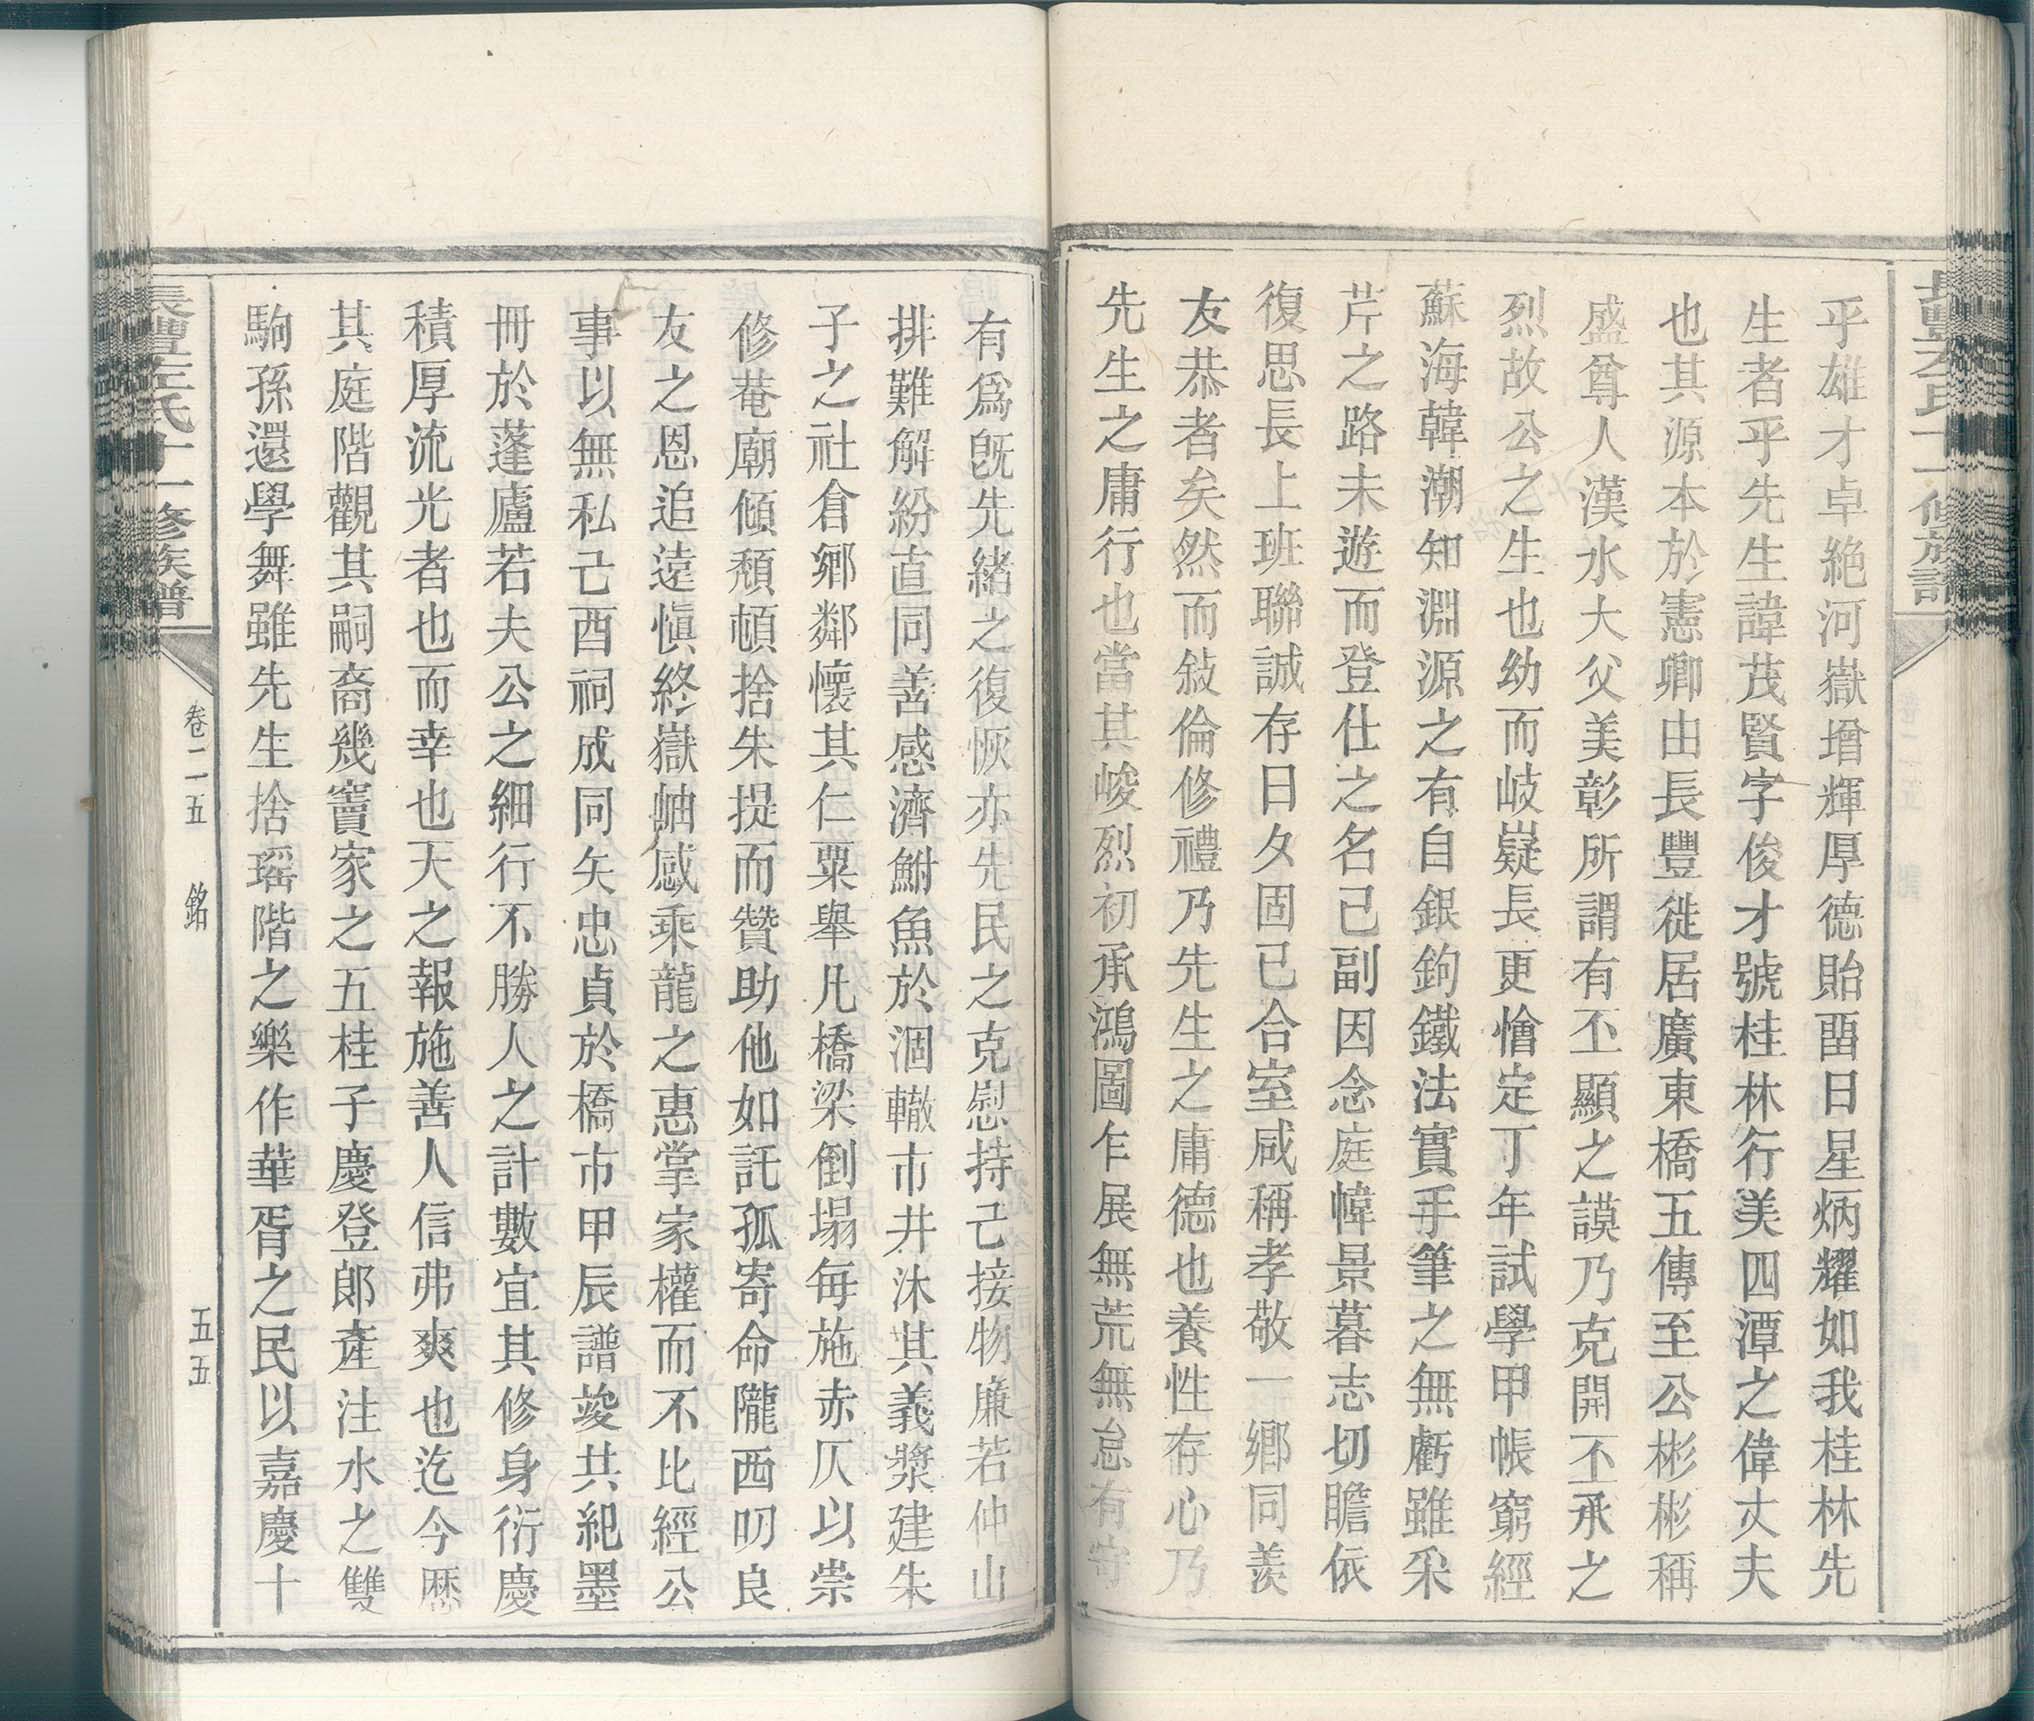 乎雄才卓絕河嶽增輝厚德貽畱日星炳耀如我桂林先
生者乎先生諱茂賢字俊才號桂林行美四潭之偉丈夫
也其源本於憲卿由長豐徙居廣東橋五傳至公彬彬稱
盛尊人漢水大父美彰所謂有丕顯之謨乃克開丕承之
烈故公之生也幼而岐嶷長更懀定丁年試學甲帳窮經
蘇海韓潮知淵源之有自銀鉤鐵法實手筆之無虧雖采
芹之路未遊而登仕之名已副因念庭幃景暮志切瞻依
復思長上班聯誠存日夕固已合室咸稱孝敬一鄉同羨
友恭者矣然而敍倫修禮乃先生之庸德也養性存心乃
先生之庸行也當其峻烈初承鴻圖乍展無荒無怠有守
有爲旣先緒之復恢亦先民之克慰持己接物廉若仲山
排難解紛直同善感濟鮒魚於涸轍市井沐其義漿建朱
子之社倉鄉鄰懷其仁粟舉凡橋梁倒塌每施赤仄以崇
修菴廟傾頹頓捨朱提而贊助他如託孤寄命隴西叨良
友之恩追遠愼終嶽岫感乘龍之惠掌家權而不比經公
事以無私己酉祠成同矢忠貞於橋市甲辰譜竣共紀墨
冊於蓬廬若夫公之細行不勝人之計數宜其修身衍慶
積厚流光者也而幸也天之報施善人信弗爽也迄今歷
其庭階觀其嗣裔幾竇家之五桂子慶登郞產注水之雙
駒孫還學舞雖先生捨瑶階之樂作華胥之民以嘉慶十
長豐左氏十一修族譜
卷二五 銘
五五